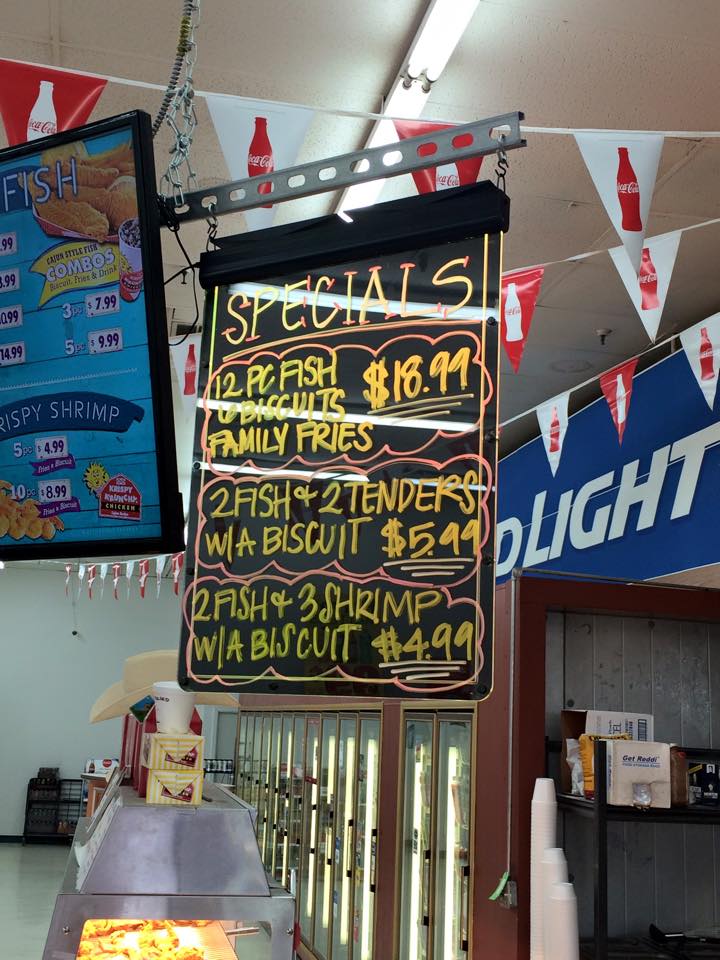 FISH
CAJUN STYLE FISH
COMBOS
Biscuit, Fries & Drink
.99
3pc $ 7.99
5pc $ 9.99
14.99
RISPY SHRIMP
5pc $ 4.99
Fries & Biscuit
10pc $ 8.99
Fries & Biscuit
KRISPY
KRUNCHY
CHICKEN
SPECIALS
12 PC FISH
6 BISCUITS
FAMILY FRIES
$18.99
2 FISH & 2 TENDERS
W/A BISCUIT $5.99
2 FISH & 3 SHRIMP
W/A BISCUIT $4.99
Coca-Cola
Coca-Cola
Coca-Cola
Coca-Cola
Coca-Cola
D LIGHT
Get Reddi